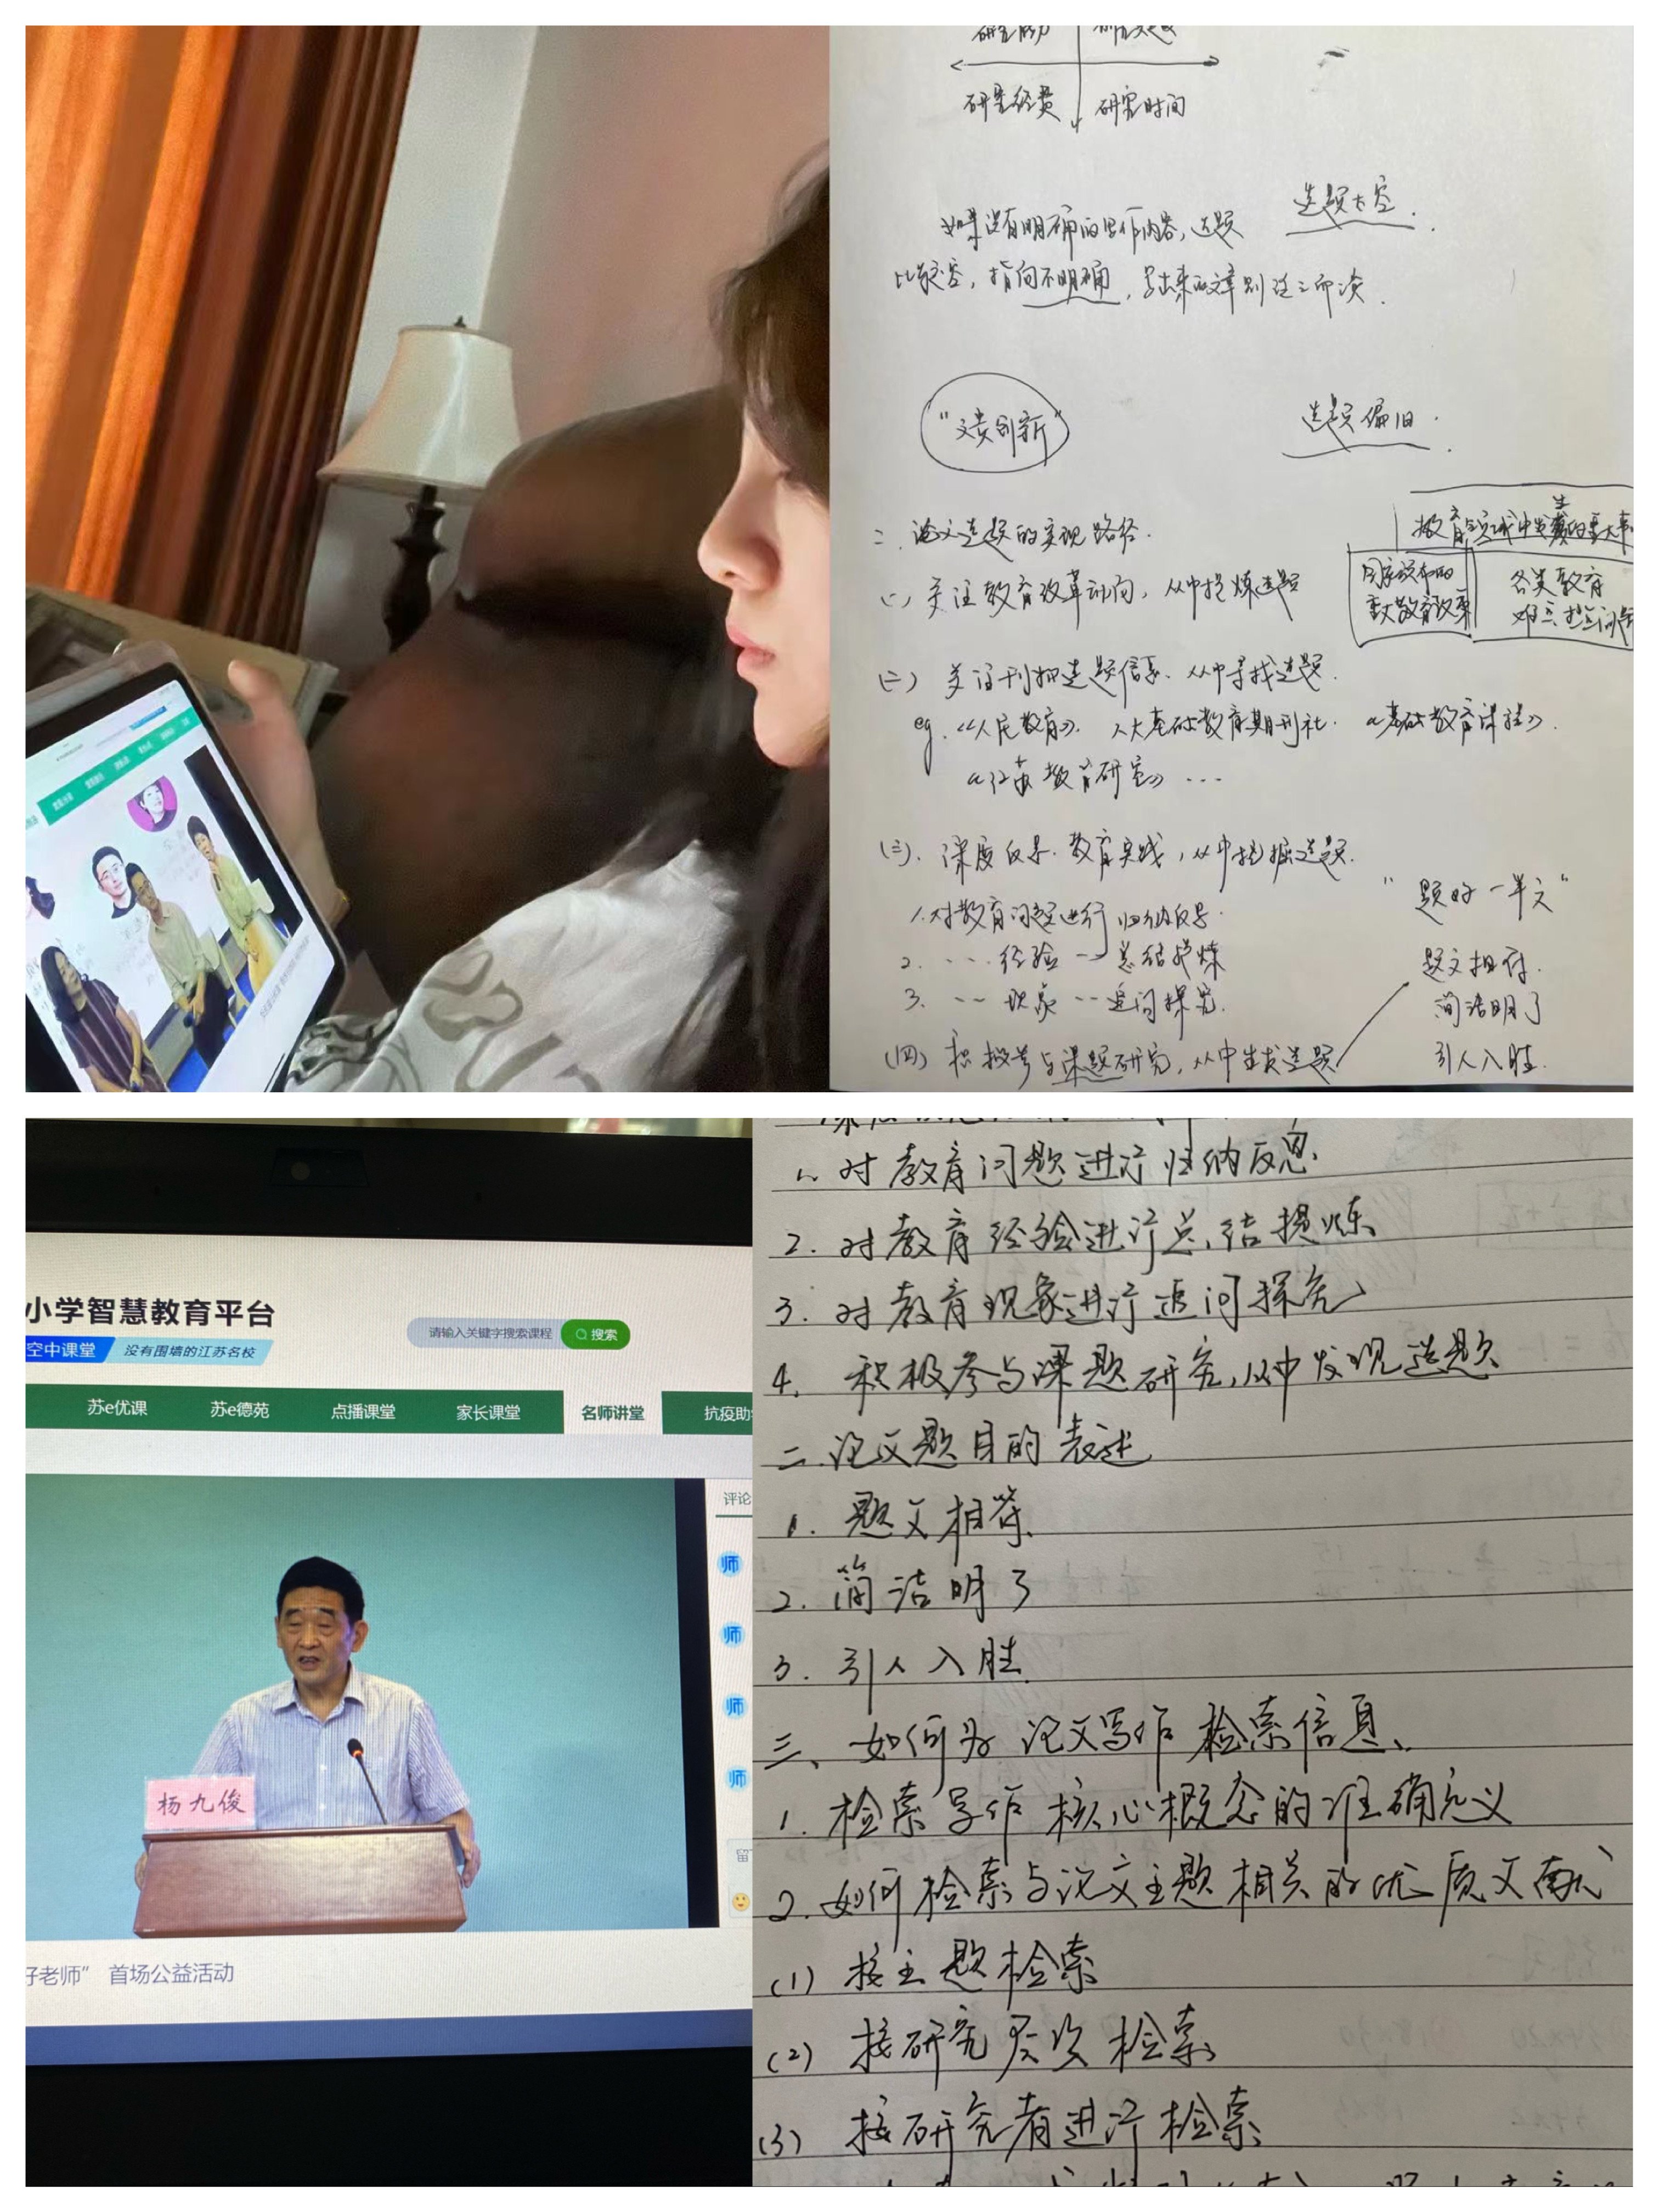 研究经费
研究时间
如果没有明确的写作内容,选题
选题太空.
比较空,指向不明确,写出来的文章则泛泛而谈.
选题偏旧.
二、论文选题的实现路径.
(一)关注教育改革动向,从中提炼选题
各类教育
重大教育改革
(二)关注刊物选题信息、从中寻找选题.
eg.《人民教育》、人大基础教育期刊社.《基础教育课程》.
《江苏教育研究》...
(三).深度反思.教育实践,从中挖掘选题.
1.对教育问题进行归纳反思.
2. ....经验→总结提炼
3. ...现象...追问探究.
(四)积极参与课题研究,从中生发选题
"题好一半文"
题文相符.
简洁明了
引人入胜.
小学智慧教育平台
空中课堂
没有围墙的江苏名校
请输入关键字搜索课程
搜索
苏e优课 苏e德苑 点播课堂 家长课堂 名师讲堂 抗疫助
评论
师
师
师
师
杨九俊
留
好老师” 首场公益活动
1、对教育问题进行归纳反思
2.对教育经验进行总结提炼
3.对教育现象进行追问探究
4.积极参与课题研究,从中发现选题
二.论文题目的表述
1.题文相符
2.简洁明了
3.引人入胜
三、如何为论文写作检索信息
1.检索写作核心概念的准确定义
2.如何检索与论文主题相关的优质文献
(1)按主题检索
(2)按研究层次检索
(3)按研究者进行检索